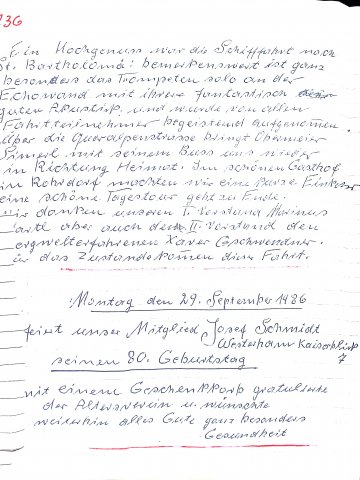 236
Ein Hochgenuss war die Schifffahrt nach
St. Bartholomä: bemerkenswert ist ganz
besonders das Trompeten solo an der
Echowand mit ihrere fantastisch
guten Akustik und wurde von allen
Fahrtteilnehmer begeistend aufgenommen
Über die Queralpenstrasse bringt Obermeier
Simerl mit seinem Bus uns wieder
in Richtung Heimat. Im schönen Gasthof
in Rohrdorf machten wir eine kurze Einkehr
eine schöne Tagestour geht zu Ende.
Wir danken unseren I. Vorstand Marinus
artl aber auch II. Vorstand den
ergwelterfahrenen Xaver Gschwendner.
ür das Zustandekommen dieser Fahrt.
Montag den 29. September 1986
feiert unser Mitglied Josef Schmidt
Westerham Kaiserblick
7
seinen 80. Geburtstag
mit einem Geschenkkorb gratulierte
der Altersverein u. wünschte
weiterhin alles Gute ganz besonders
Gesundheit